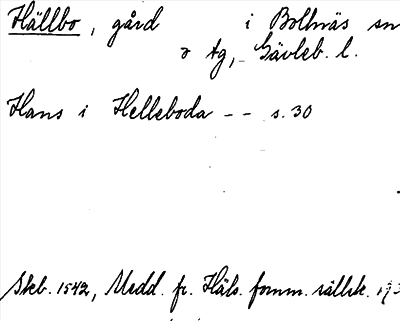 Hällbo, gård i Bollnäs sn
o tg, Gävleb. l.
Hans i Helleboda -- s. 30
Skb. 1542, Medd. fr. Häls. fornm. sällsk.